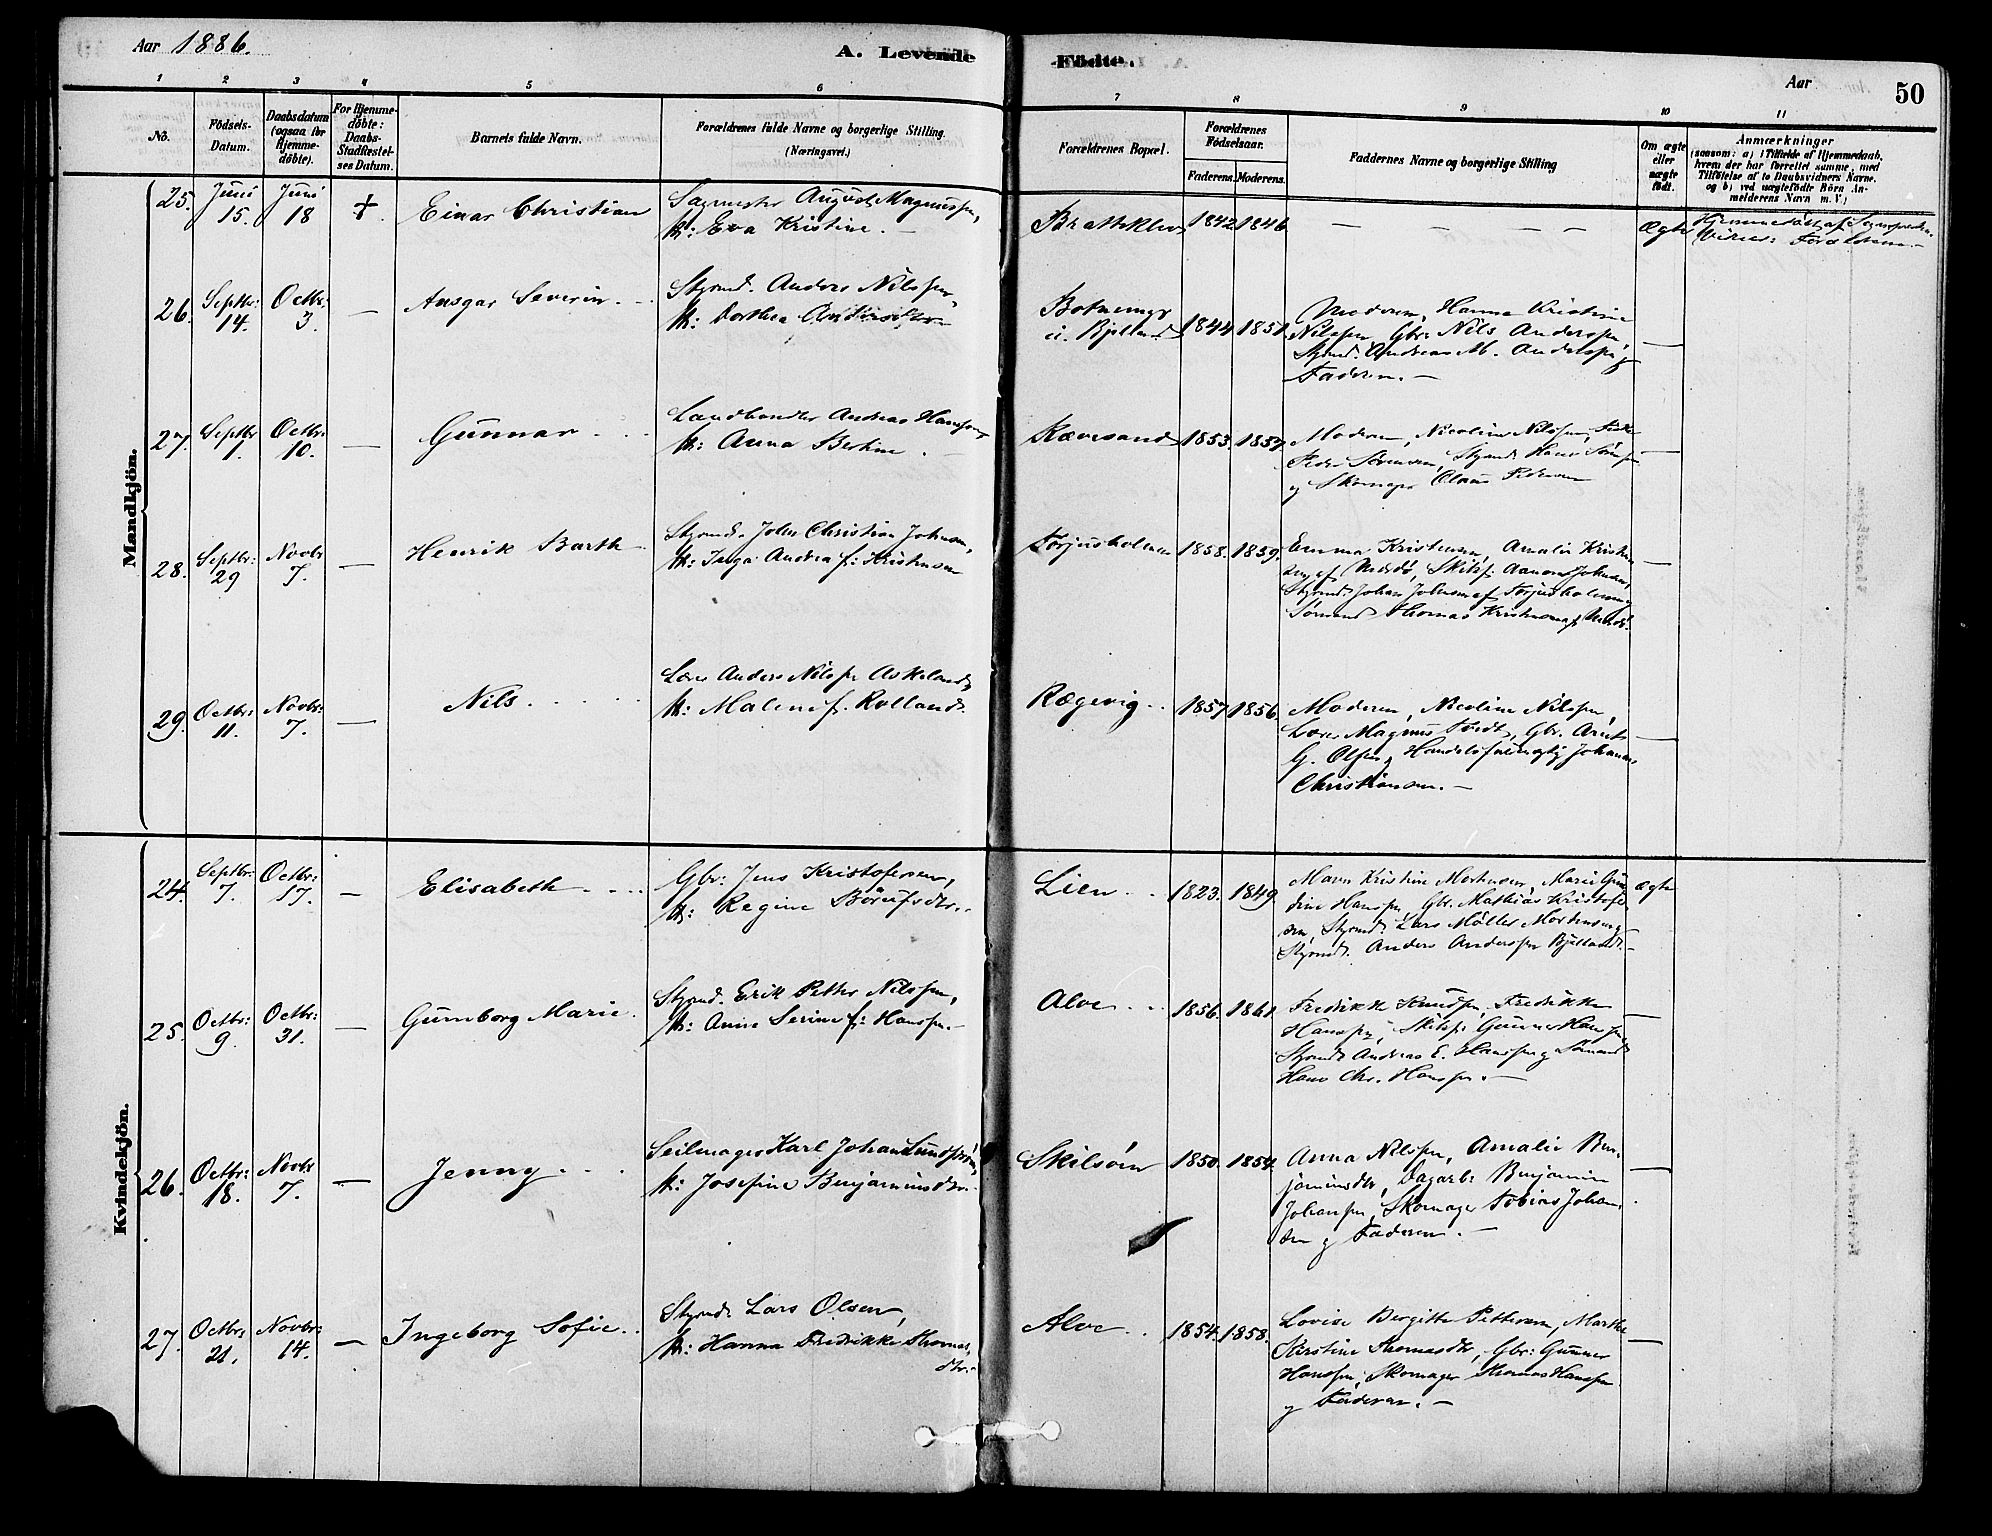 Aar 1886.
A. Levende Födte.
Aar
50
1 2 3 4 5 6 7 8 9 10 11
No.
Födsels-
Datum.
Daabsdatum
(ogsaa for
Hjemme-
döbte).
For Hjemme-
döbte:
Daabs-
Stadfæstel-
ses Datum.
Barnets fulde Navn.
Forældrenes fulde Navne og borgerlige Stilling.
(Næringsvei.)
Forældrenes Bopæl.
Forældrenes
Födselsaar.
Faderens. Moderens.
Faddernes Navne og borgerlige Stilling
Om ægte
eller
uægte
födt.
Anmærkninger
(saasom: a) i Tilfælde af Hjemmedaab,
hvem der har forrettet samme, med
Tilföielse af to Daabsvidners Navne.
og b) ved uægtefödte Börn An-
melderens Navn m. V.)
Mandkjön.
25. Juni 15. Juni 18 + Einar Christian
Sagmester August Magnussen,
H: Eva Kristine. —
Brattekleiv 1842 1846 — — — — Ægte
Hjemmedöbt af
Vidner: Forældrene. —
26. Septbr: 14. Octbr: 3. — Ansgar Severin. —
Styrmd. Anders Nilssen,
H: Dorthea Andersdtr
i. Bjelland 1844 1851.
Moderen, Hanna Kristine
Nilssen, Gbr: Nils Anderssen,
Styrmd. Andreas M. Anderssen og
Faderen. — —
27. Septbr 1. Octbr: 10. — Gunnar . . .
Landhandler Andreas Hanssen,
H: Anna Bertine . —
Rævesand 1853. 1857.
Moderen, Nicoline Nilssen,
Peder Sörensen, Styrmd. Hans
og Skomager Olaus Pedersen —
28. Septbr: 29 Novbr 7. — Henrik Barth —
Styrmd. John Christian Johnsen,
H: Inga Andrea f: Kristensen
Torjusholmen 1858. 1859.
Emma Kristensen, Amalie Kristen
sen af Merdö, Skibsf: Aanon Johnsen,
Styrmd. Johan Johnsen af Torjusholmen og
Sömand Thomas Kristensen af Merdö. —
29. Octbr: 11. Novbr: 7. — Nils . . . .
Lærer Anders Nilssen Askeland,
H: Malene f. Rolland.
Rægevig . . 1857 1856.
Moderen, Nicoline Nilssen,
Lærer Magnus Tvedt, Gbr. Arent
G. Olsen, Handelsfuldmægtig Johannes
Christiansen. — —
Kvindekjön.
24. Septbr: 7. Octbr: 17. — Elisabeth . . . .
Gbr: Jens Kristofersen,
H: Regine Börufsdtr. .
Lien . . 1823. 1849.
Maren Kristine Mortensen, Marie Gun
dine Hanssen, Gbr. Mathias Kristofer
sen, Styrmd. Lars Möller Mortensen og
Styrmd. Anders Anderssen Bjelland. — ægte
25. Octbr: 9. Octbr: 31. — Gunvborg Marie .
Styrmd. Erik Petter Nilssen,
H: Anne Serine f: Hanssen. —
Alve . . 1856. 1861
Fredrikke Knudsen, Fredrikke
Hanssen, Skibsf: Gunner Hanssen,
Styrmd. Andreas E. Hanssen og Sömand
Hans Chr. Hanssen. — —
26. Octbr: 18. Novbr 7. — Jenny . . .
Seilmager Karl Johan Lundström,
H: Josefine Benjaminsdtr.
Skilsöen 1850. 1854.
Anna Nilssen, Amalie Ben-
jaminsdtr, Dagarb: Benjamin
Johanssen, Skomager Tobias Johan-
sen og Faderen. — —
27. Octbr: 21. Novbr: 14. — Ingeborg Sofie . .
Styrmd. Lars Olsen,
H: Hanna Fredrikke Thomas-
dtr. —
Alve . . 1854. 1858.
Lovise Bergitte Pettersen, Marthe
Kerstine Thomasdtr, Gbr: Gunner
Hanssen, Skomager Thomas Hanssen
og Faderen. — —